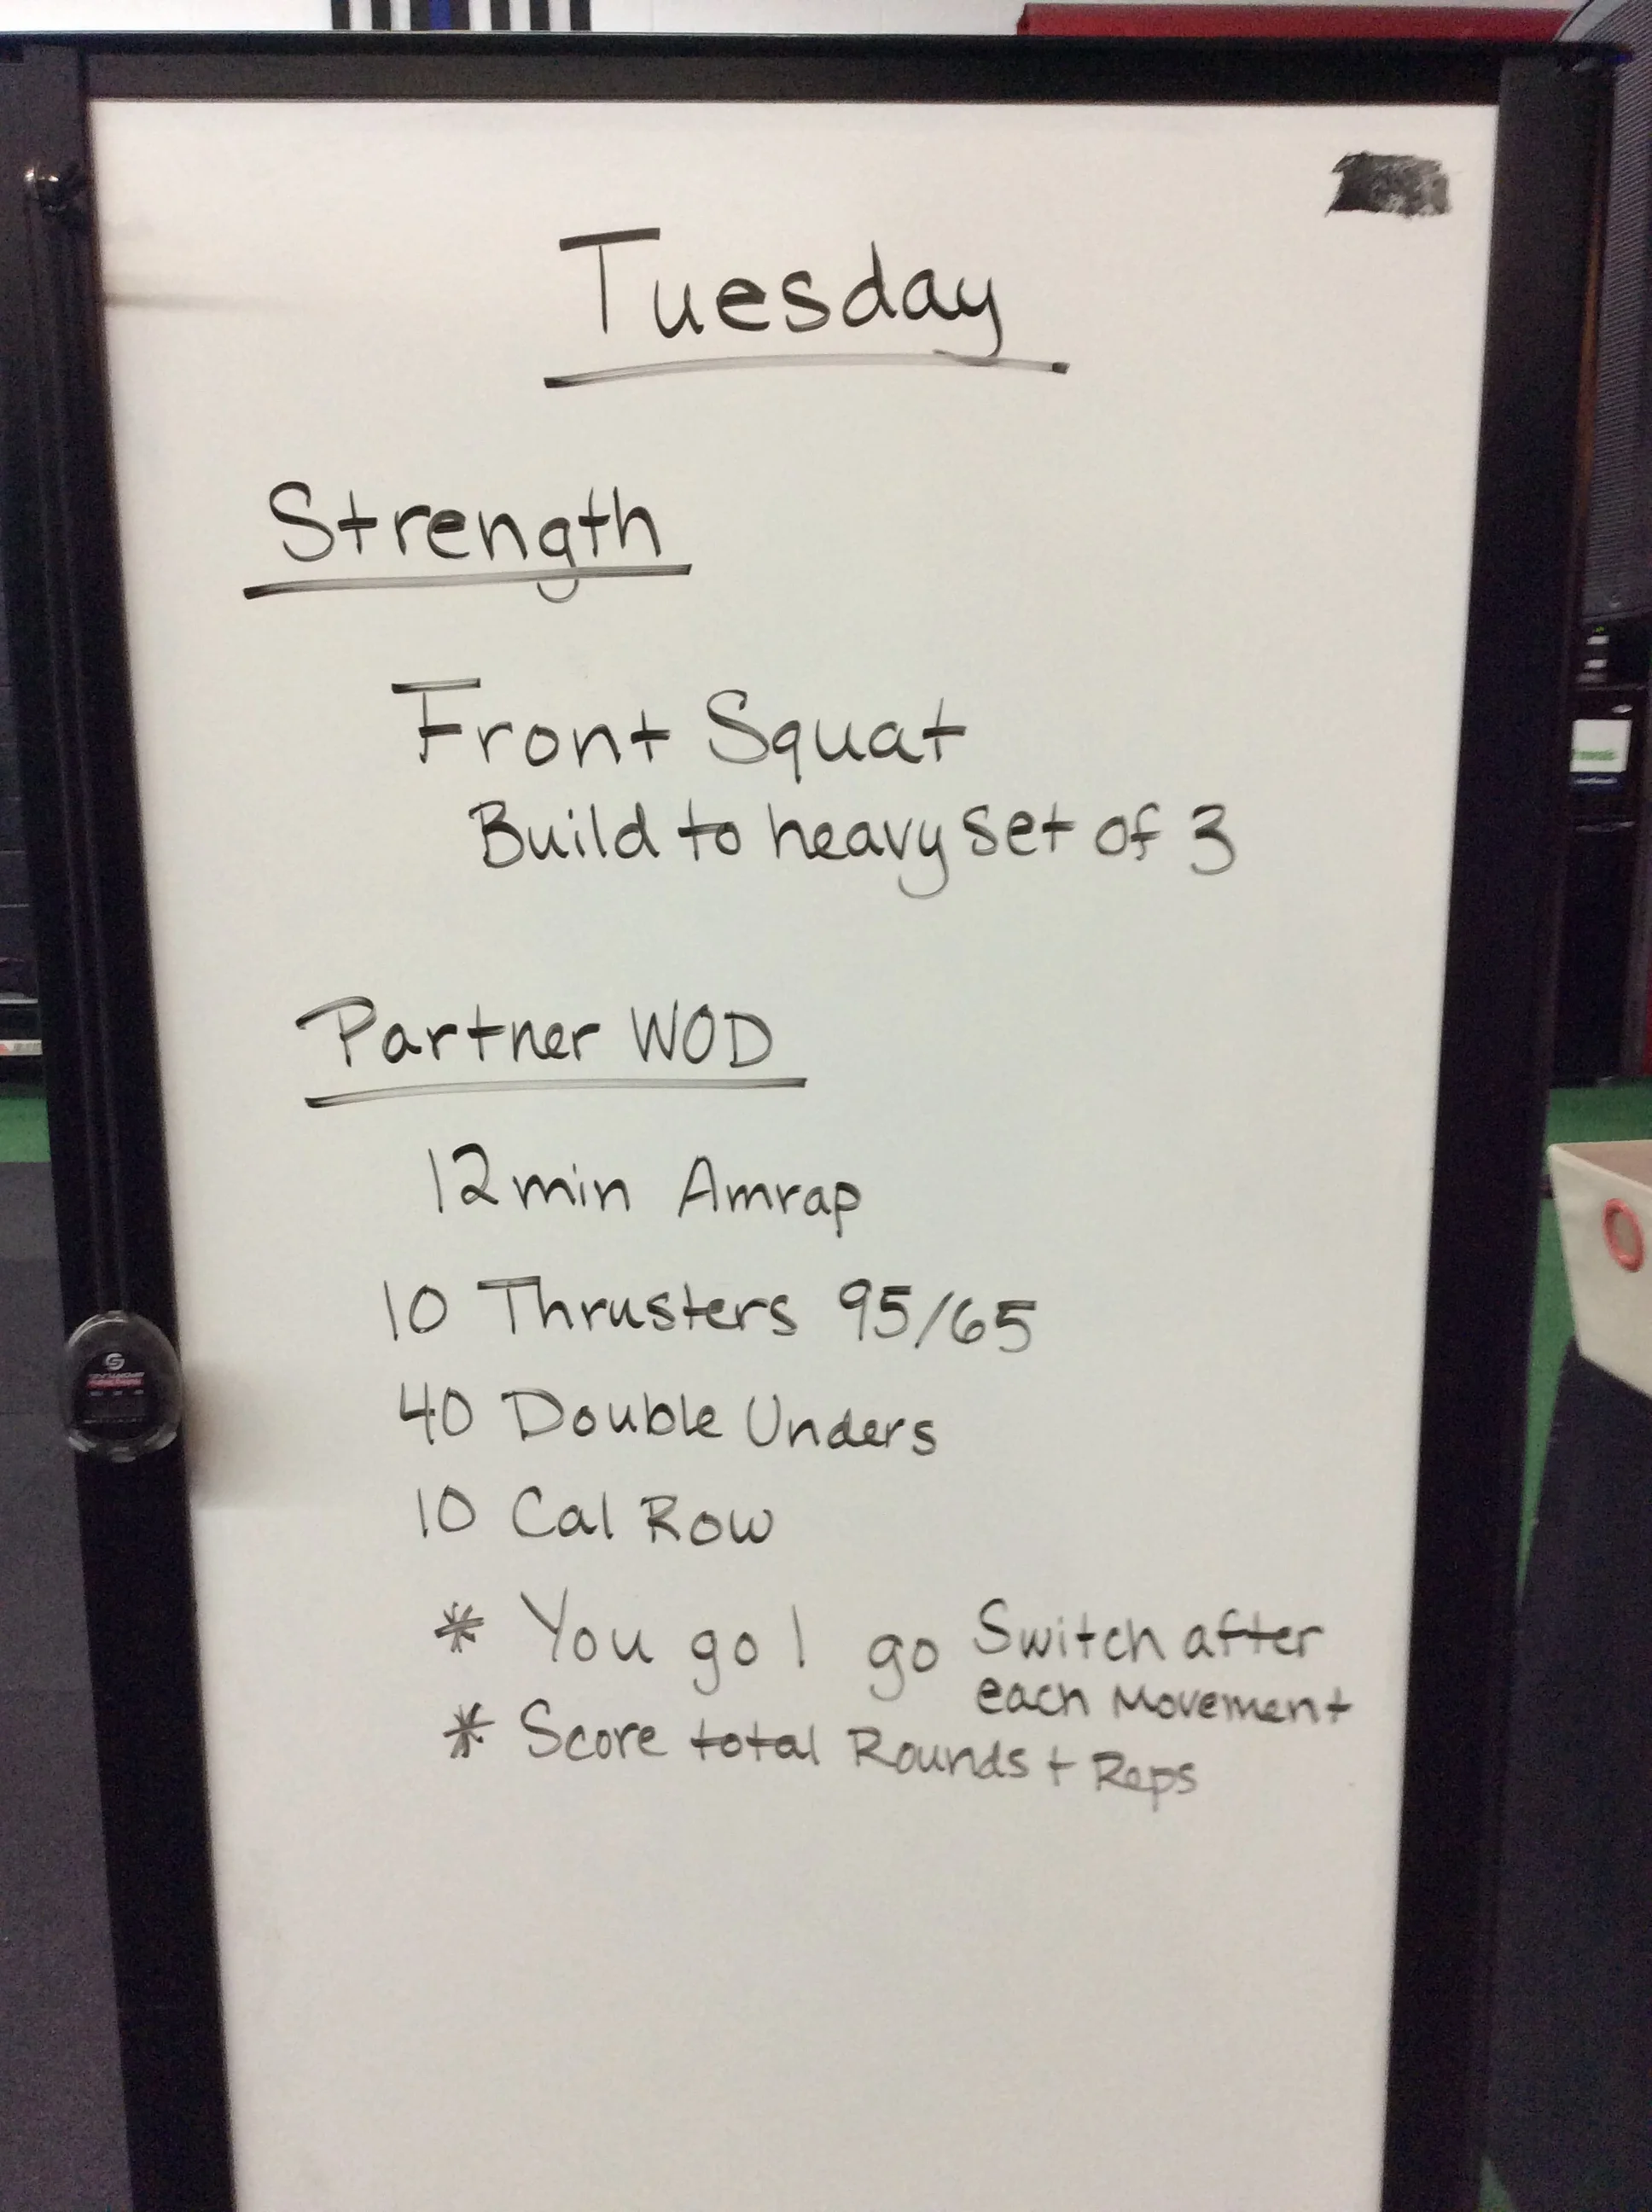 Tuesday
Strength
Front Squat
Build to heavy set of 3
Partner WOD
12 min Amrap
10 Thrusters 95/65
40 Double Unders
10 Cal Row
* You go I go Switch after
each Movement
* Score total Rounds + Reps